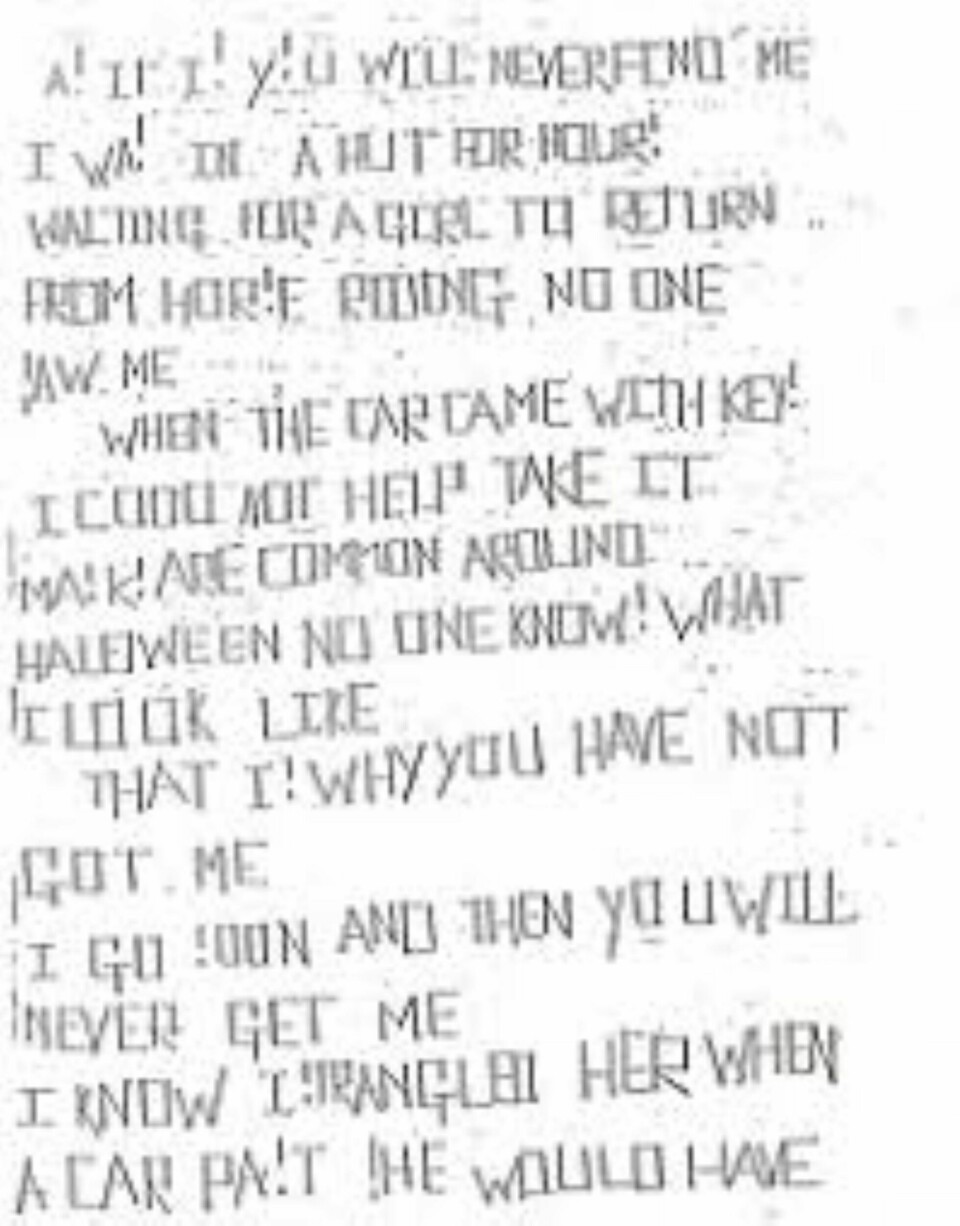 A! IT I! Y!U WILL NEVER FIND ME
I WA! IN A HUT FOR HOUR!
WAITING FOR A GIRL TO RETURN
FROM HOR!E RIDING NO ONE
!AW ME
WHEN THE CAR CAME WITH KEY!
I COULD NOT HELP TAKE IT
MA!K! ARE COMMON AROUND
HALOWEEN NO ONE KNOW! WHAT
I LOOK LIKE
THAT I! WHY YOU HAVE NOT
GOT ME
I GO !OON AND THEN YOU WILL
NEVER GET ME
I KNOW I !TRANGLED HER WHEN
A CAR PA!T !HE WOULD HAVE